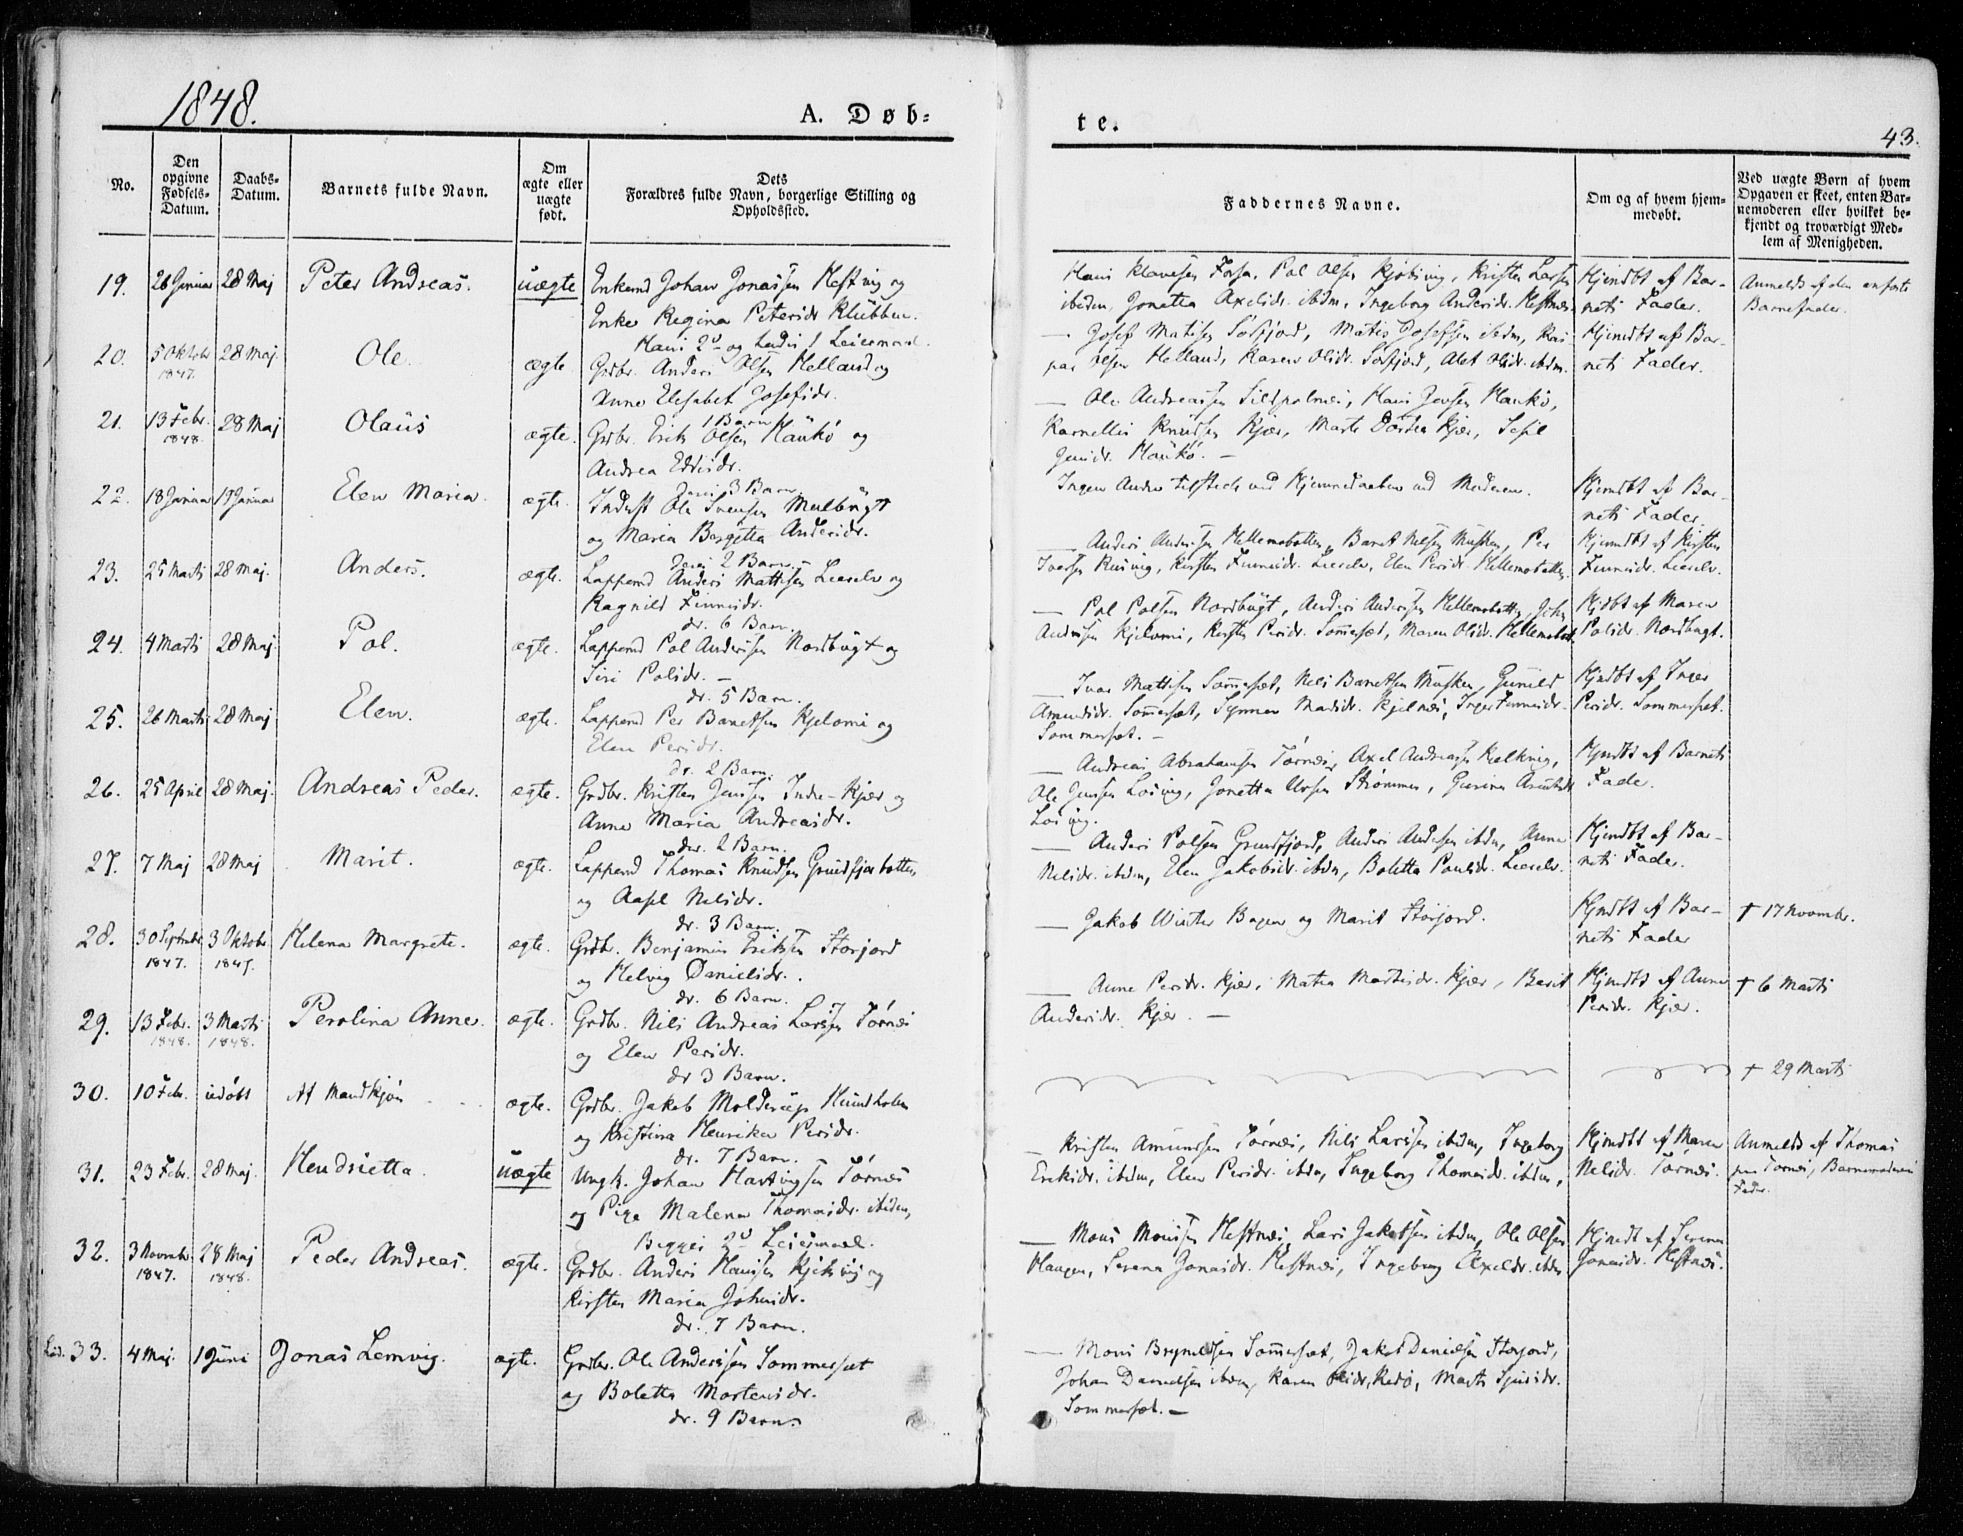 1848.
A. Døb=
te.
43.
No.
Den opgivne Fødsels-Datum.
Daabs-Datum.
Barnets fulde Navn.
Om ægte eller uægte født.
Dets Forældres fulde Navn, borgerlige Stilling og Opholdssted.
Faddernes Navne.
Om og af hvem hjemmedøbt.
Ved uægte Børn af hvem Opgaven er skeet, enten Barnemoderen eller hvilket bekjendt og troværdigt Medlem af Menigheden.
19. 26 Januar 28 Maj Peter Andreas. uægte Enkemd Johan Jonassen Hestvig og
Enke Regina Petersdr. Klubben.
Hans 2d og hendes 1 Leiermaal.
Hans Klavesen Forsa, Pol Olsen Kjøbsvig, Kristen Larsen
ibidem, Jonetta Axelsdr. ibdm, Ingeborg Andersdr. Hestnæs
Hjemdbt af Bar-
nets Fader.
Anmeldt af den anførte
Barnefader.
20. 5 Oktobr 1847. 28 Maj. Ole. ægte Grdbr. Anders Olsen Helland og
Anne Elisabet Josefsdr.
1 Barn
— Josef Matisen Sofjord, Matis Josefsen ibdm, Kas-
par Olsen Helland, Karen Olsdr. Sofjord, Alet Olsdr. ibdm.
Hjemdbt af Bar-
nets Fader.
21. 13 Febr. 1848. 28 Maj Olaüs ægte. Grdbr. Erik Olsen Haukø og
Andrea Eddisdr.
3 Barn
— Ole Andreassen Sildpolnes, Hans Jensen Haukø,
Karnelius Knudsen Kjær, Marte Dortea Kjær,
Haukø. —
22. 18 Januar 19 Januar Elen Maria. ægte. Indst Ole Svensen Mulbugt
og Maria Bergitta Andersdr.
2 Barn.
Ingen Andre tilstede ved Hjemmedaaben end Moderen.
Hjemdbt af Bar-
nets Fader.
23. 25 Marts 28 Maj. Anders. ægte. Lappemd Anders Mattisen Leerelv og
Ragnild Finnesdr.
dr. 6 Barn.
— Anders Andersen Hellemobotten, Baret Nilsen Musken, Per
Iversen Rusvig, Kirsten Finnesdr. Leerelv, Elen Persdr. Hellemobotten.
Hjemdbt af Kirsten
Finnesdr. Leerelv.
24. 4 Marts 28 Maj. Pol. ægte. Lappemd Pol Andersen Nordbugt og
Siri Polsdr. —
dr. 5 Barn.
— Pol Polsen Nordbugt, Anders Andersen Hellemobotten, John
Andersen Kjelvmi, Kirsten Persdr. Sommersæt, Maren Olsdr. Hellemobot.
Hjdbt af Maren
Polsdr. Nordbugt.
25. 26 Marts 28 Maj Elen. ægte. Lappemd Per Baretsen Kjelomi og
Elen Persdr.
dr. 2 Barn.
— Ivar Mattisen Sommersæt, Nils Baretsen Musken, Gunild
Amundsdr. Sommersæt, Synnev Madsdr. Kjelnæs, Inger Finnesdr.
Sommersæt. —
Hjmdbt af Inger
Persdr. Sommersæt.
26. 25 April 28 Maj. Andreas Peder. ægte. Grdbr. Kristen Jensen Indre-Kjær og
Anne Maria Andreasdr.
der. 2 Barn.
— Andreas Abrahamsen Tørnæs, Axel Andreasen Kalkvig,
Ole Jensen Losvig, Jonetta Strømmen, Gurina
Losvig.
Hjmdbt af Barnets
Fader.
27. 7 Maj 28 Maj Marit. ægte. Lappemd Thomas Knudsen Grundfjorbotten
og Aasel Nilsdr.
dr. 3 Barn.
— Anders Polsen Grundfjord, Anders Andersen ibdm, Anne
Nilsdr. ibdm, Elen Jakobsdr. ibdm, Boletta Paulsdr. Leerelv.
Hjemdbt af Bar-
nets Fader.
28. 30 Septembr 1847. 3 Oktobr. 1847. Helena Margrete. ægte. Grdbr. Benjamin Eriksen Storjord
og Helvig Danielsdr.
dr. 6 Barn.
— Jakob Winther Bogen og Marit Storjord.
Hjmdbt af Bar-
nets Fader
† 17 Novembr.
29. 13 Febr. 1848. 3 Marts 1848. Perolina Anne. ægte. Grdbr. Nils Andreas Larsen Tørnæs
og Elen Persdr.
dr 3 Barn.
— Anne Persdr. Kjær, Matea Mortesdr. Kjær, Berit
Andersdr. Kjær. —
Hjemdbt af Anne
Persdr. Kjær.
† 6 Marts
30. 10 Febr. udøbt Af Mandkjøn ægte. Grdbr. Jakob Molderup Hundholm
og Kristina Henrikka Persdr.
dr. 7 Barn.
† 29 Marts
31. 23 Febr. 28 Maj. Hendrietta. uægte Ungk. Johan Hartvigsen Tørnæs
og Pige Malena Thomasdr. ibidem,
Begges 2d Leiermaal.
— Kristen Amundsen Tørnæs, Nils Larsen ibidm, Ingeborg
Eriksdr. ibidm, Elen Persdr. ibdm, Ingeborg Thomasdr. ibidm,
Hjmdbt af Maren
Nilsdr. Tørnæs.
Anmeldt af Thomas
Tørnæs, Barnemoderens
Fader.
32. 3 Novembr 1847. 28 Maj 1848. Peder Andreas. ægte. Grdbr. Anders Hansen Kjeksvig og
Kirsten Maria Johnsdr.
dr. 7 Barn.
— Mons Monsen Hestnæs, Lars Jakobsen ibdm, Ole Olsen
Haugen, Serena Jonasdr. Hestnæs, Ingeborg Axelsdr. ibdm
Hjmdbt af Serena
Jonasdr. Hestnæs.
33. 4 Maj. 1 Juni Jonas Lemvig. ægte. Grdbr. Ole Andersen Sommersæt
og Boletta Mortensdr.
dr. 9 Barn.
— Mons Brynildsen Sommersæt, Jakob Danielsen Storjord,
Johan Danielsen ibdm, Karen Olsdr. Rødø, Marte Sjursdr.
Sommersæt. —